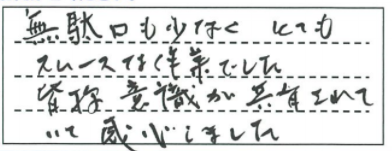 無駄口も少なく とても
スムースな作業でした
皆様 意識が共有されて
いて 感心しました